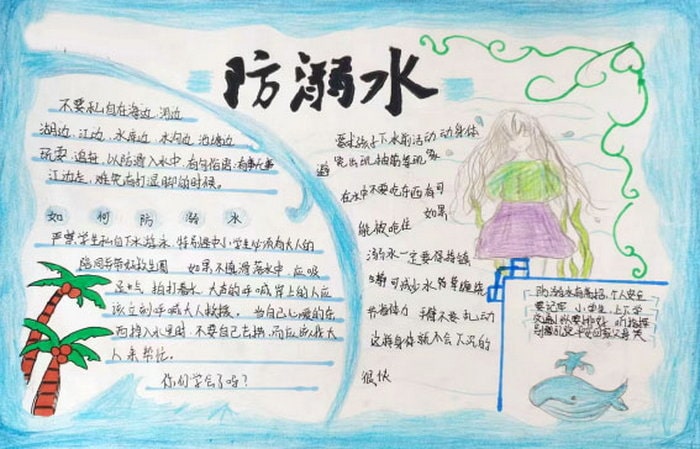 防溺水
不要私自在海边 河边
湖边 江边 水库边 水沟边 池塘边
玩耍 追赶 以防滑入水中 有句俗语 有事无事
江边走 难免有打湿脚的时候。
如何防溺水
严禁学生私自下水游泳 特别是中小学生必须有大人的
陪同并带好救生圈 如果不慎滑落水中 应吸
足气 拍打着水 大声的呼喊 岸上的人应
该立刻呼喊大人救援 当自己心爱的东
西掉入水里时 不要自己去捞 而应该找大
人来帮忙。
你们学会了吗?
要求孩子下水前活动活动身体
避免出现抽筋等现象
在水中不要吃东西 有可
能被呛住 如果
溺水一定要保持镇
可减少水草缠绕
节省体力 手脚不要乱动
这样身体就不会下沉的
很快
防溺水有高招 个人安全
要记牢 小学生 上下学